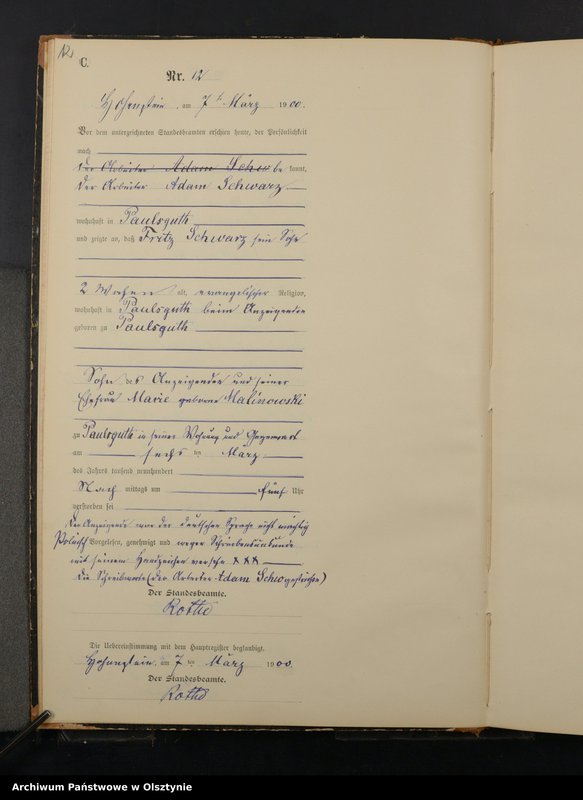 12.
C.
Nr. 12
Hohenstein, am 7ten März 1900.
Vor dem unterzeichneten Standesbeamten erschien heute, der Persönlichkeit
nach
der Arbeiter Adam Schw be kannt,
der Arbeiter Adam Schwarz
wohnhaft in Paulsguth
und zeigte an, daß Fritz Schwarz sein Sohn
2 Wochen alt, evangelischer Religion,
wohnhaft in Paulsguth beim Anzeigenden
geboren zu Paulsguth
Sohn des Anzeigenden und seiner
Ehefrau Marie geborene Malinowski
zu Paulsguth in seiner Wohnung und Gegenwart
am sechsten März
des Jahres tausend neunhundert
Nach mittags um fünf Uhr
verstorben sei
Der Anzeigende war der deutschen Sprache nicht mächtig
Polnisch Vorgelesen, genehmigt und wegen Schreibensunkunde
mit seinem Handzeichen versehn xxx
Die Schreibworte (der Arbeiter Adam Schw gestrichen)
Der Standesbeamte.
Rothe
Die Uebereinstimmung mit dem Hauptregister beglaubigt.
Hohenstein, am 7ten März 1900.
Der Standesbeamte.
Rothe
Archiwum Państwowe w Olsztynie